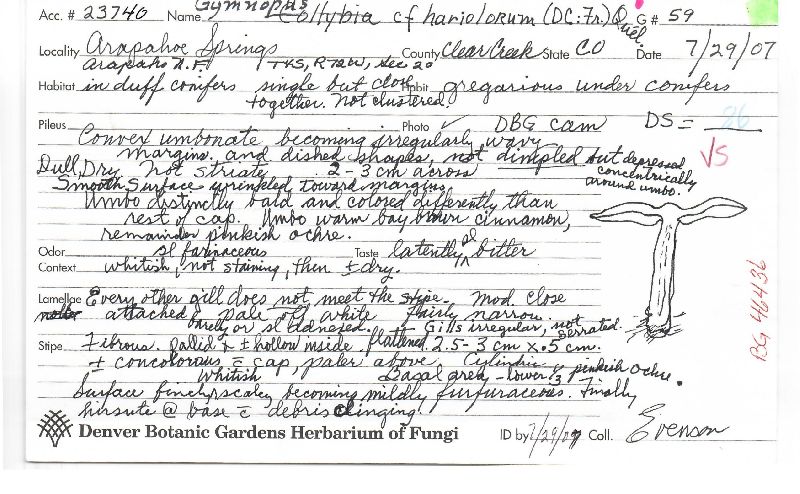 Acc. # 23740 Name Gymnopus Collybia cf hariolorum (DC:Fr.) Quél. G# 59
Locality Arapahoe Springs County Clear Creek State CO Date 7/29/07
Arapaho N.F. T4S, R72W, Sec 20
Habitat in duff conifers single but close Habit gregarious under conifers
together. Not clustered.
Pileus Photo ✓ DBG cam DS = 86
Convex umbonate becoming irregularly wavy
margins, and dished shapes, not dimpled but depressed concentrically around umbo.
VS
Dull, Dry. Not striate. 2-3 cm across
Smooth Surface wrinkled toward margins
Umbo distinctly bald and colored differently than
rest of cap. Umbo warm bay brown cinnamon,
remainder pinkish ochre.
Odor sl farinaceous Taste latently sl bitter
Context whitish, not staining, then ± dry.
Lamellae Every other gill does not meet the stipe. Mod. close
attached, pale off white fairly narrow.
barely or sl adnexed. Gills irregular, not serrated.
Stipe Fibrous. Pallid & ± hollow inside. flattened 2.5-3 cm x .5 cm.
± concolorous c̄ cap, paler above Cylindric
Whitish Basal area - lower ⅓ pinkish ochre.
Surface finely scaley becoming mildly furfuraceous. Finally
hirsute @ base c̄ debris clinging!
BG 46436
Denver Botanic Gardens Herbarium of Fungi ID by 7/29/07 Coll. Evenson